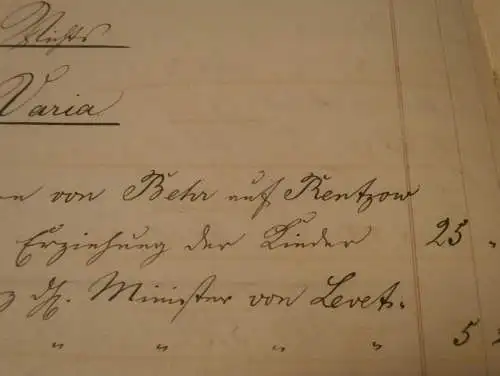 Nichts
Varia
von Behr auf Rentzow
Erziehung der Kinder 25 "
dH. Minister von Levet-
" " " " 5